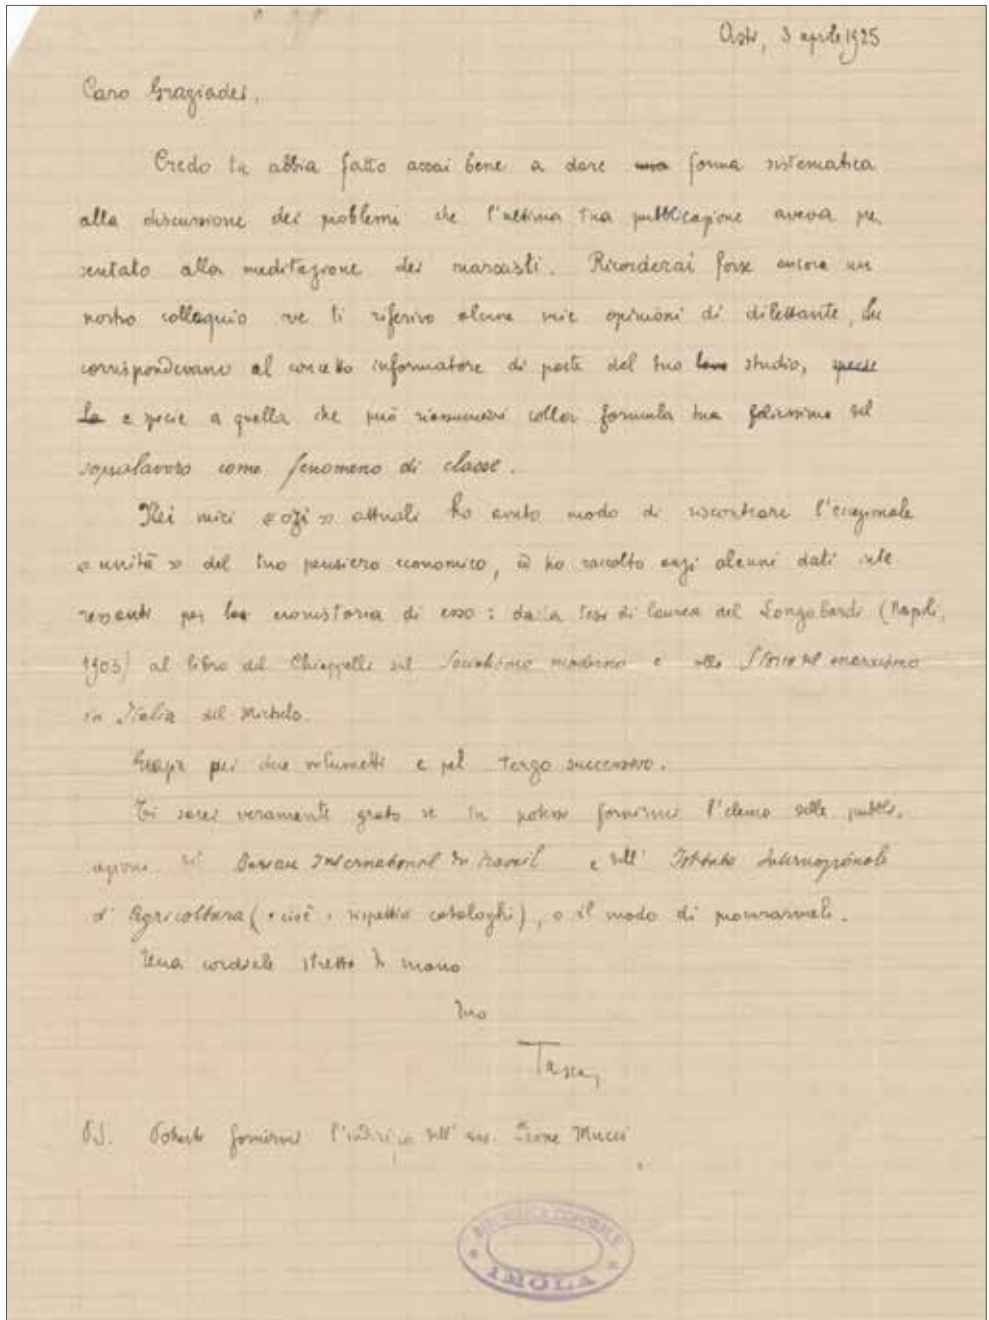 Asti, 3 aprile 1925
Caro Graziadei,
Credo tu abbia fatto assai bene a dare una forma sistematica
alla discussione dei problemi che l'ultima tua pubblicazione aveva pre
sentato alla meditazione dei marxisti. Ricorderai forse ancora un
nostro colloquio ove ti riferivo alcune mie opinioni di dilettante, che
corrispondevano al concetto informatore di parte del tuo studio, specie
la e specie a quella che può riassumersi colla formula tua felicissima del
sopralavoro come fenomeno di classe.
Nei miei « ozi » attuali ho avuto modo di riscontrare l'eccezionale
« unità » del tuo pensiero economico, ed ho raccolto anzi alcuni dati inte
ressanti per la cronistoria di esso: dalla tesi di laurea del Longobardi (Napoli,
1903) al libro del Chiappelli sul Socialismo moderno e alla Storia del marxismo
in Italia del Michels.
Grazie pei due volumetti e pel terzo successivo.
Ti sarei veramente grato se tu potessi fornirmi l'elenco delle pubbli.
cazioni del Bureau International du Travail e dell' Istituto Internazionale
d' Agricoltura (e cioè i rispettivi cataloghi), o il modo di procurarmeli.
Una cordiale stretta di mano
tuo
Tasca
PS. Potresti fornirmi l'indirizzo dell' avv. Leone Mucci
BIBLIOTECA COMUNALE
IMOLA